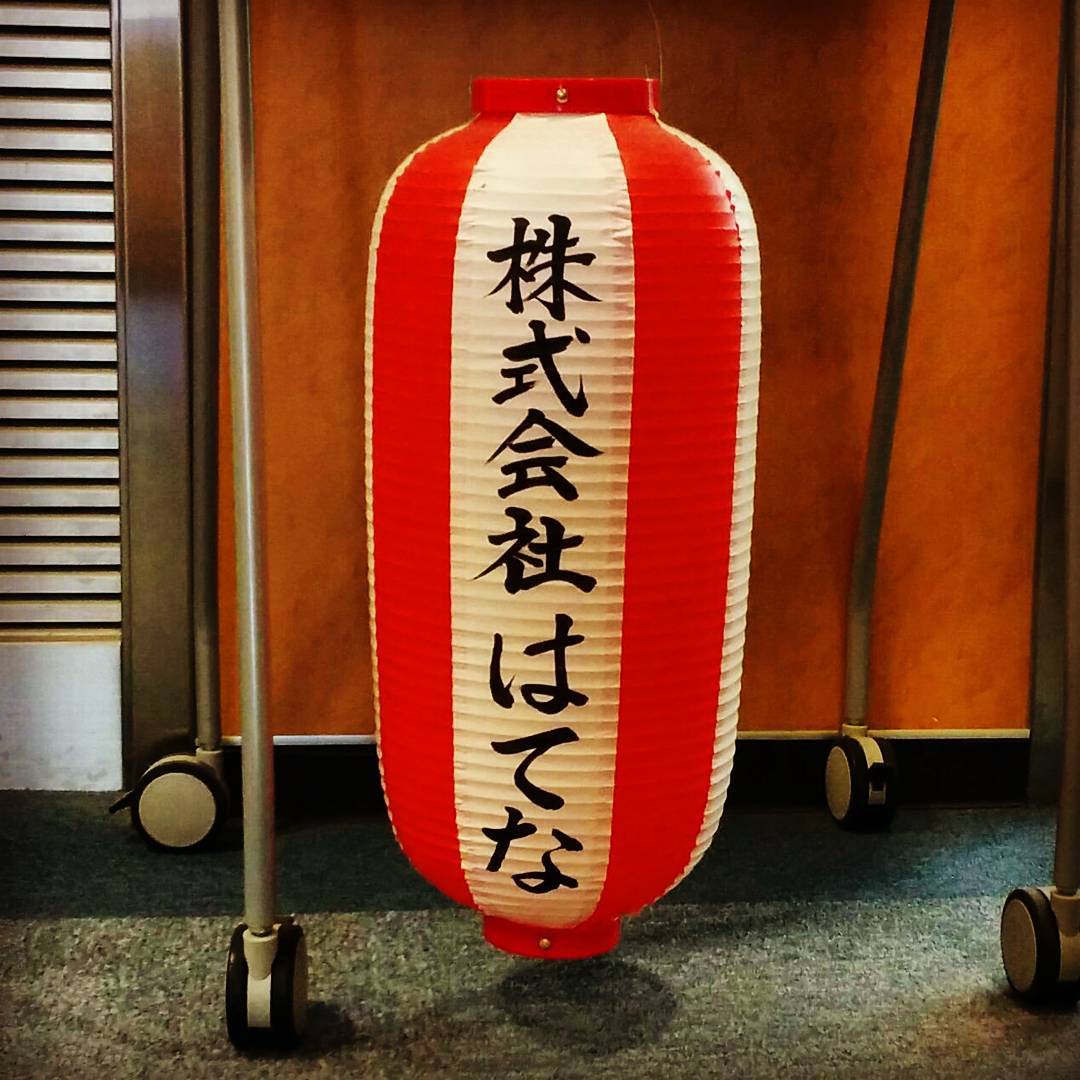 株式会社はてな